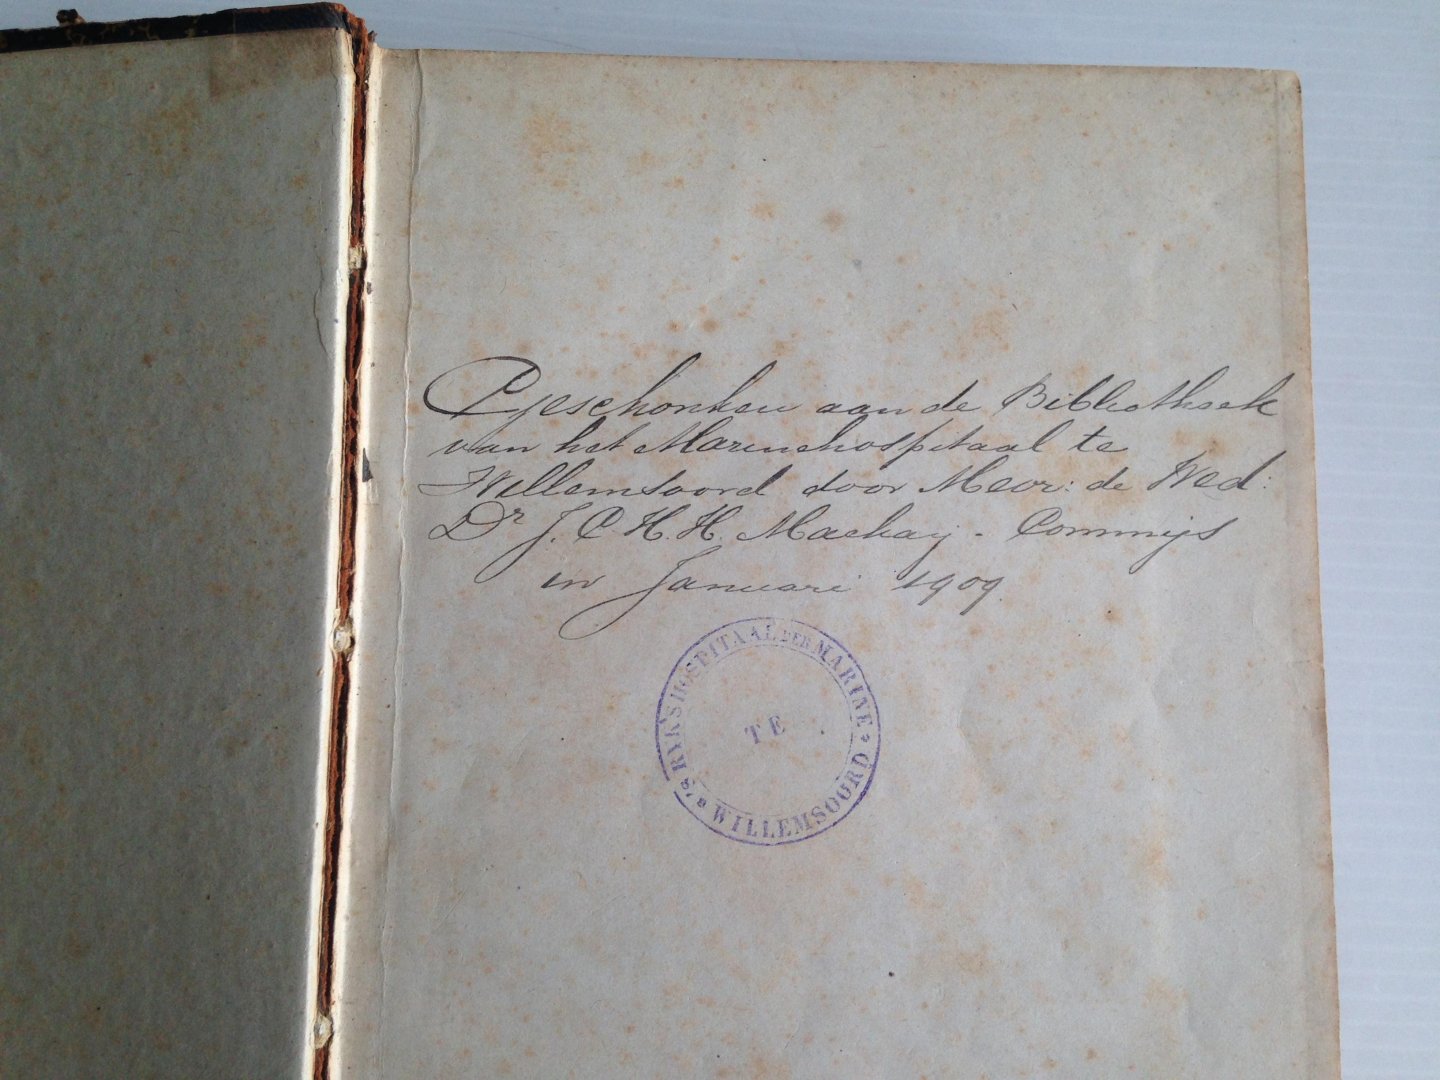 Geschonken aan de Bibliotheek
van het Marinehospitaal te
Willemsoord door Mevr: de Wed:
Dr J. C. H. H. Mackay - Commijs
in Januari 1909.
RYK'S HOSPITAAL DER MARINE
TE
WILLEMSOORD